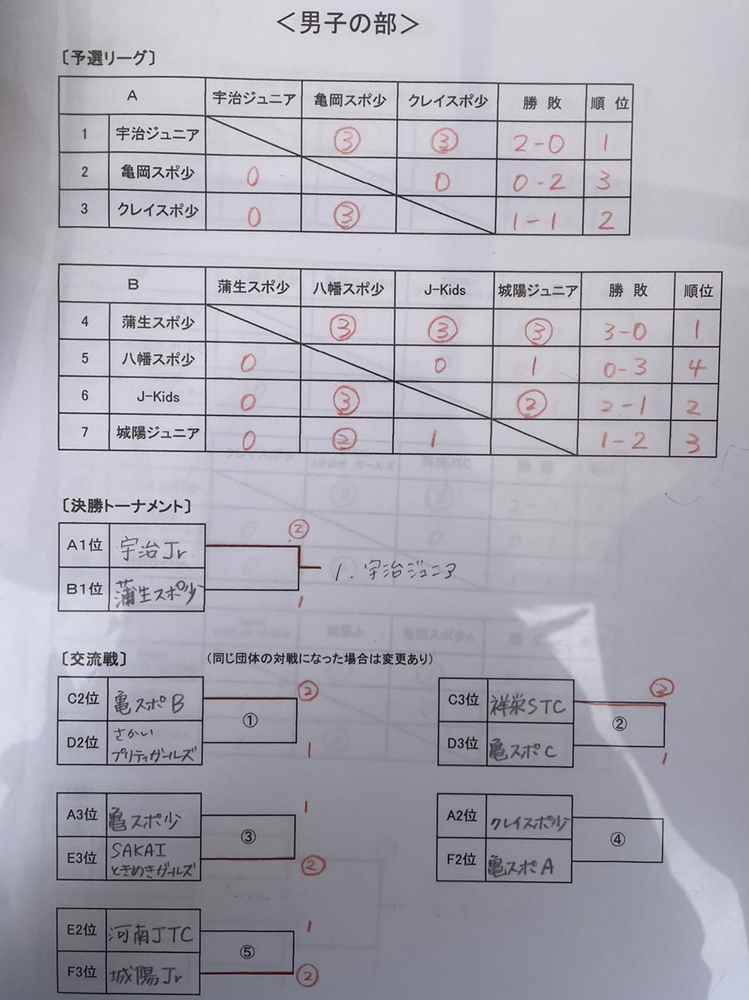 ＜男子の部＞
〔予選リーグ〕
A 宇治ジュニア 亀岡スポ少 クレイスポ少 勝敗 順位
1 宇治ジュニア ③ ③ 2-0 1
2 亀岡スポ少 0 0 0-2 3
3 クレイスポ少 0 ③ 1-1 2
B 蒲生スポ少 八幡スポ少 J-Kids 城陽ジュニア 勝敗 順位
4 蒲生スポ少 ③ ③ ③ 3-0 1
5 八幡スポ少 0 0 1 0-3 4
6 J-Kids 0 ③ ② 2-1 2
7 城陽ジュニア 0 ② 1 1-2 3
〔決勝トーナメント〕
②
A1位 宇治Jr
1. 宇治ジュニア
B1位 蒲生スポ少
1
〔交流戦〕 (同じ団体の対戦になった場合は変更あり)
C2位 亀スポB ②
①
D2位 さかい
プリティガールズ 1
C3位 祥栄STC ②
②
D3位 亀スポC 1
A3位 亀スポ少 1
③
E3位 SAKAI
ときめきガールズ ②
A2位 クレイスポ少
④
F2位 亀スポA
E2位 河南JTC 1
⑤
F3位 城陽Jr ②